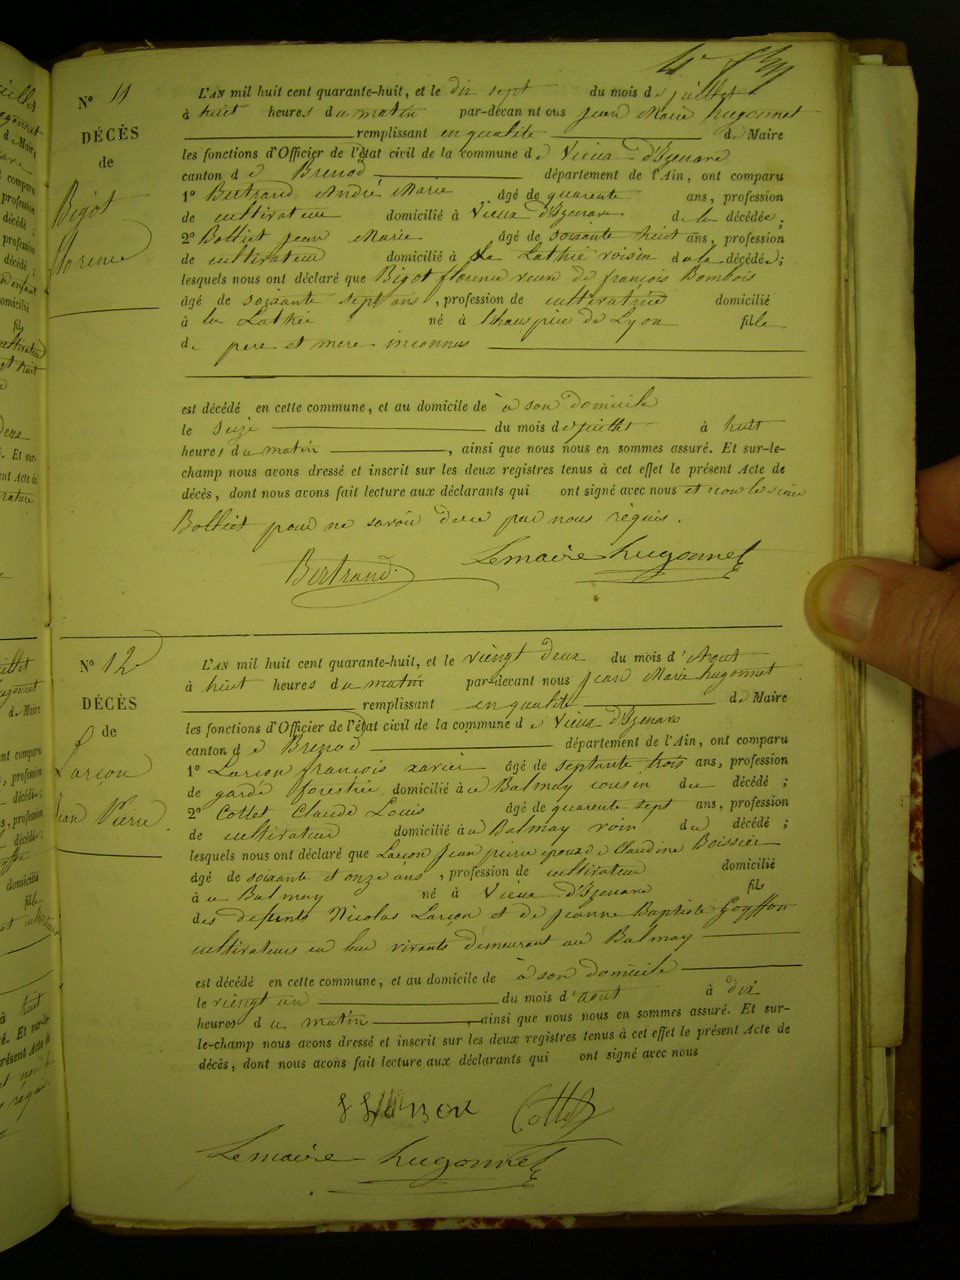 N° 11
DÉCÈS
de
Bigot
florence
L'AN mil huit cent quarante-huit, et le dix sept du mois de juillet
à huit heures du matin par-devant nous jean Marie hugonnet
remplissant en qualité de Maire
les fonctions d'Officier de l'état civil de la commune de Vieux d'Izenave
canton de Brenod département de l'Ain, ont comparu
1° Bertrand André Marie âgé de quarente ans, profession
de cultivateur domicilié à Vieux d'Izenave de la décédée;
2° Bolliet jean Marie âgé de soixante huit ans, profession
de cultivateur domicilié à La Lathié voisin de la décédée;
lesquels nous ont déclaré que Bigot florence veuve de françois Bombois
âgé de soixante sept ans, profession de cultivatrice domicilié
à la Lathie né à l'hauspice de Lyon fille
de pere et mere inconnus
est décédé en cette commune, et au domicile de à son domicile
le seize du mois de juillet à huit
heures du matin, ainsi que nous nous en sommes assuré. Et sur-le-
champ nous avons dressé et inscrit sur les deux registres tenus à cet effet le présent Acte de
décès, dont nous avons fait lecture aux déclarants qui ont signé avec nous et non le sieur
Bolliet pour ne savoir de ce par nous réquis.
Bertrand Lemaire hugonnet
N° 12
DÉCÈS
de
Larçon
Jean Pierre
L'AN mil huit cent quarante-huit, et le viengt deux du mois d'Aout
à huit heures du matin par-devant nous jean Marie hugonnet
remplissant en qualité de Maire
les fonctions d'Officier de l'état civil de la commune de Vieux d'Izenave
canton de Brenod département de l'Ain, ont comparu
1° Larçon françois xavier âgé de septante trois ans, profession
de garde forestié domicilié à u Balmay cousin du décédé;
2° Cottet Claude Louis âgé de quarente sept ans, profession
de cultivateur domicilié à u Balmay voisin du décédé;
lesquels nous ont déclaré que Larçon jean pierre epoux de Claudine Boissier
âgé de soixante et onze ans, profession de cultivateur domicilié
à u Balmay né à Vieux d'Izenave fils
des defunts Nicolas Larçon et de jeanne Baptiste Goyffon
cultivateurs en leur vivants demeurant au Balmay
est décédé en cette commune, et au domicile de à son domicile
le viengt un du mois d'aout à dix
heures du matin ainsi que nous nous en sommes assuré. Et sur-
le-champ nous avons dressé et inscrit sur les deux registres tenus à cet effet le présent Acte de
décès, dont nous avons fait lecture aux déclarants qui ont signé avec nous
Cottet
Lemaire hugonnet